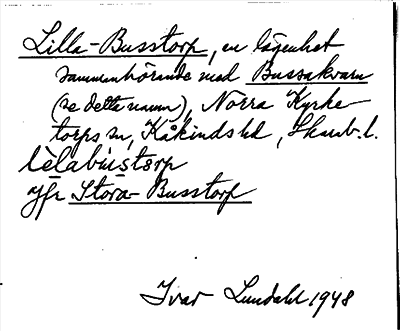 Lilla-Busstorp, en lägenhet
sammanhörande med Bussakvarn
(se detta namn), Norra Kyrke
torps sn, Kåkinds hd, Skarab. l.
lilabu̇storp
Jfr Stora-Busstorp
Ivar Lundahl 1948